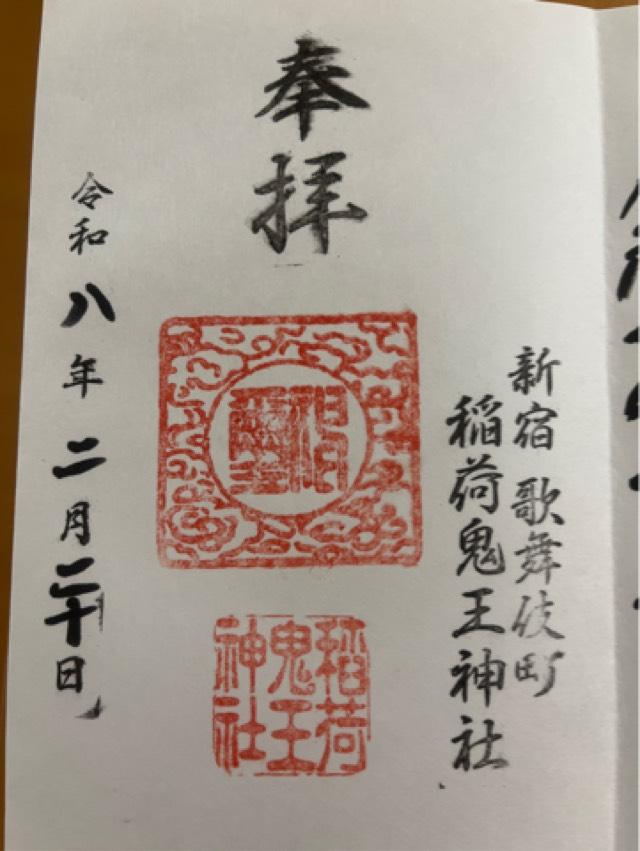 奉拝
新宿 歌舞伎町
稲荷鬼王神社
稲荷
鬼王
神社
令和八年二月二十日